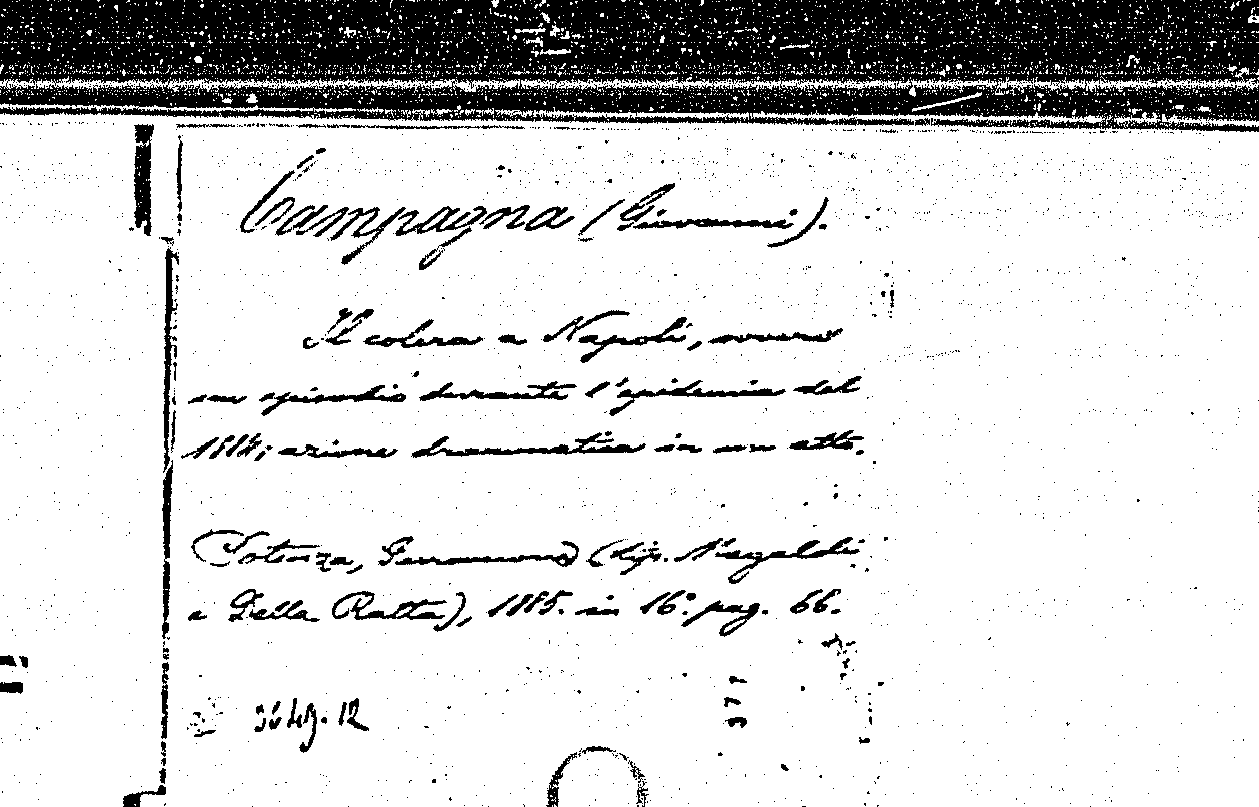 Campagna (Giovanni).
Il colera a Napoli, ovvero
un episodio durante l'epidemia del
1884; azione drammatica in un atto.
Potenza, Germano (tip. Magaldi
e Della Ratta), 1885. in 16.° pag. 66.
12
377